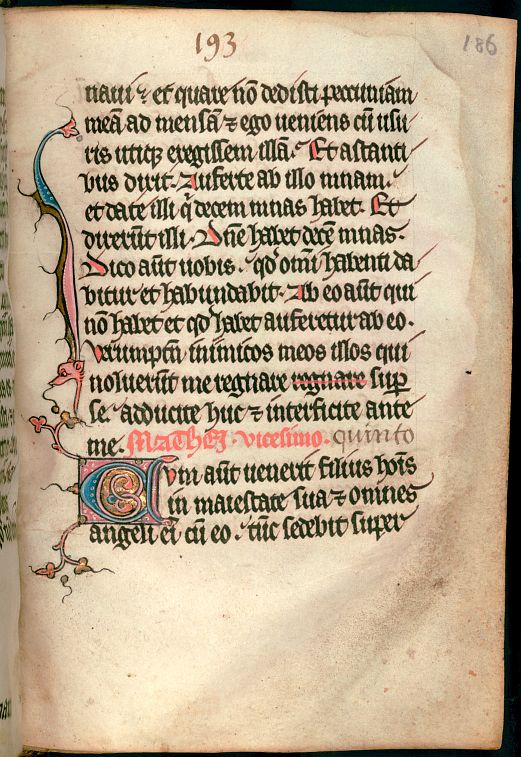 193
186
naui ⁊ et quare nō dedisti peccuniam
meā ad mensā ⁊ ego veniens cū usu
ris utiqȝ exegissem illā. Et astanti
bus dixit. Auferte ab illo mnam.
et date illi q̄ decem mnas habet. Et
dixerūt illi. Dn̄e habet decē mnas.
Dico aūt vobis. qd̄ om̄i habenti da
bitur et habundabit. Ab eo aūt qui
nō habet et qd̄ habet auferetur ab eo.
Verumptn̄ inimicos meos illos qui
noluerūt me regnare regnare sup̄
se. adducite huc ⁊ interficite ante
me. Mathei. vicesimo. quinto
Cum aūt venerit filius hōis
in maiestate sua ⁊ omnes
angeli ei cū eo. tūc sedebit super